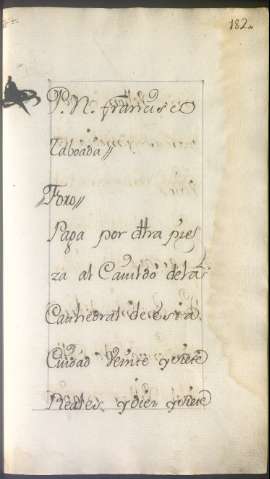 182.
P. N. Francisco
Taboada//
//Foro//
Paga por dha pies
za al Cavildo de la
Cathedral de esta
Ciudad Veinte y siete
Reales y diez y siete